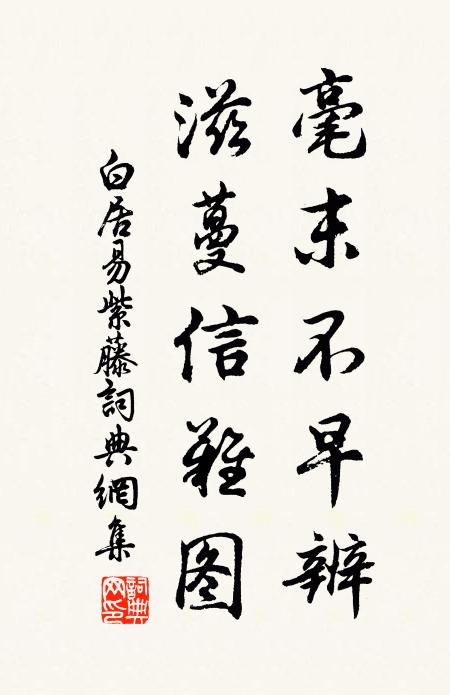 毫末不早辨
滋蔓信难图
白居易紫藤詞典網集
詞典网印